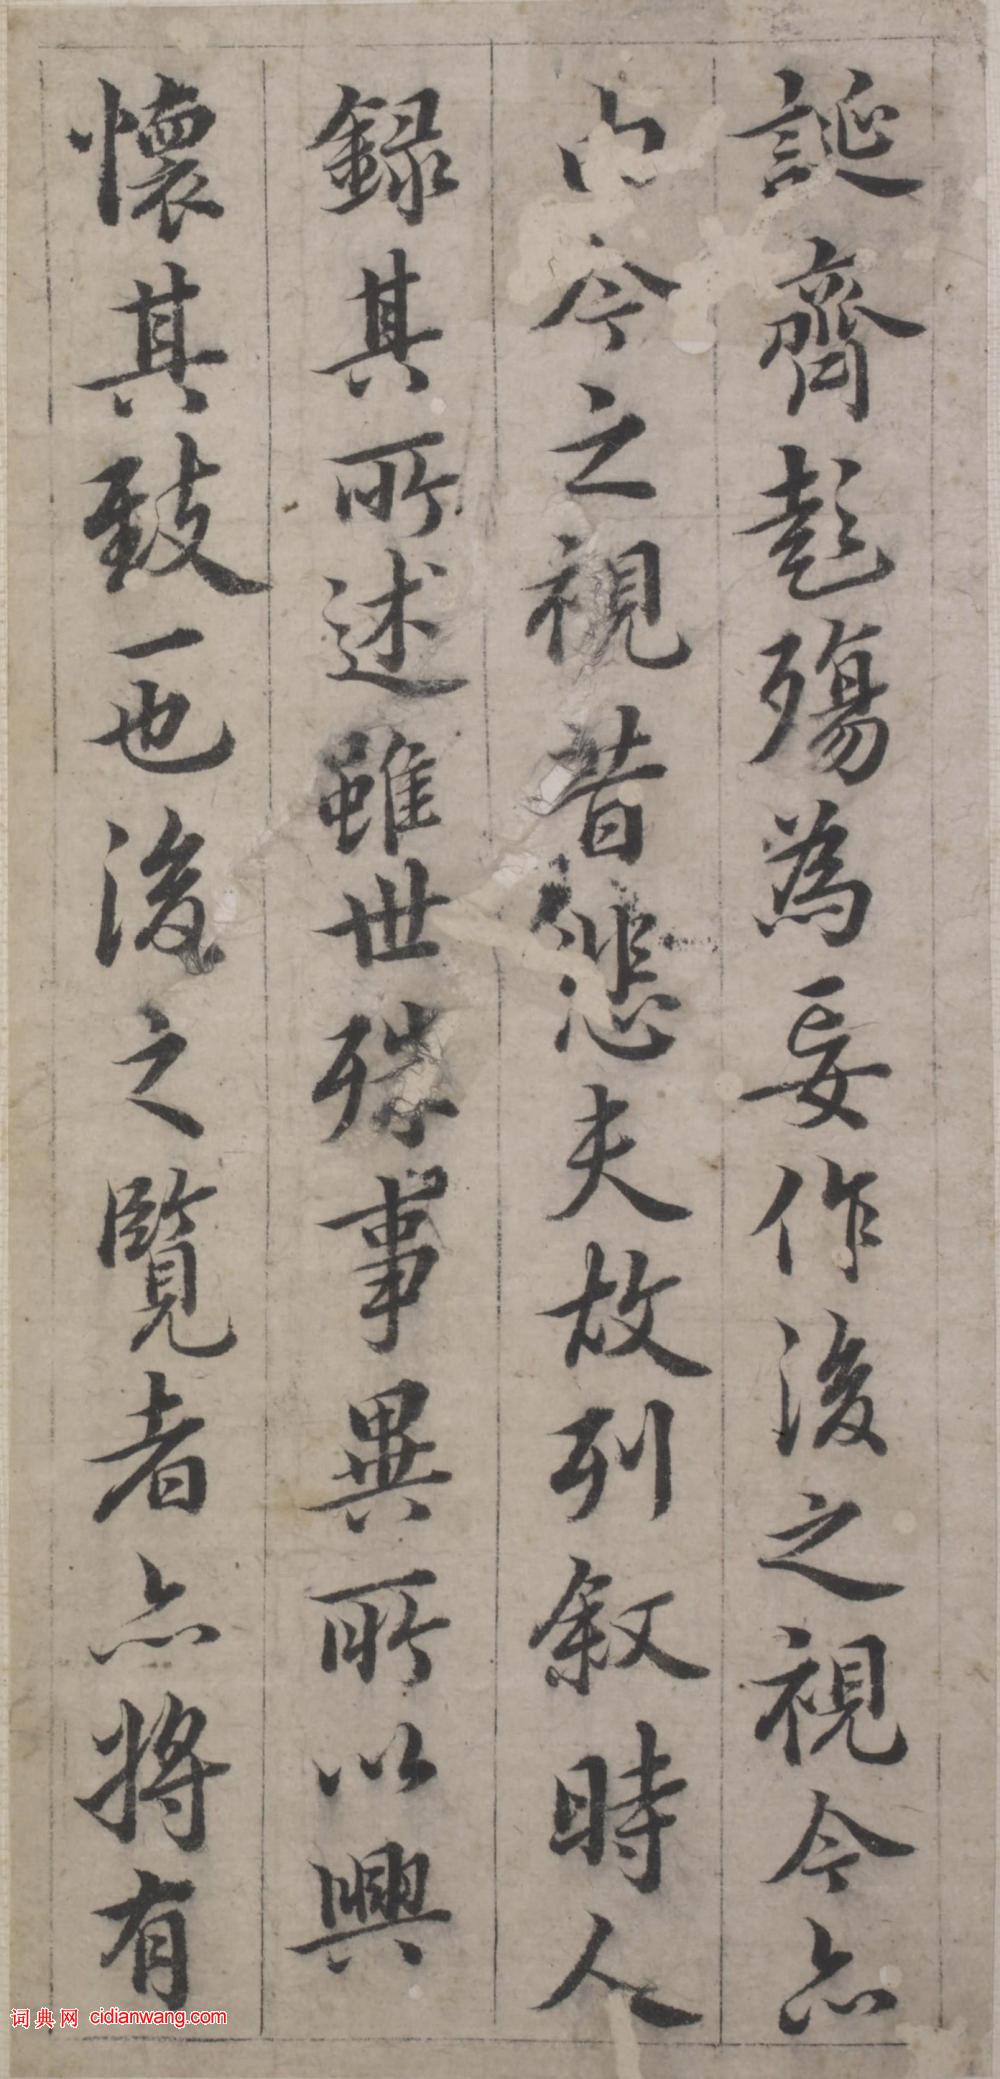 誕齊彭殤為妄作後之視今亦
由今之視昔悲夫故列叙時人
録其所述雖世殊事異所以興
懷其致一也後之覽者亦將有
词典网 cidianwang.com